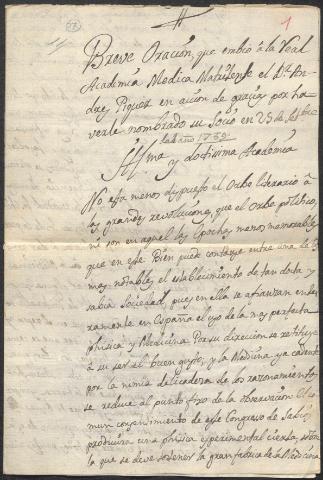 1
Breve Oración, que embió á la Real
Academia Medica Matritense el Dr. An-
dres Piquer en accion de gracias por ha-
verle nombrado su Socio en 25 de
del año 1739.
Illma. y doctissima Academia
No está menos dispuesto el Orbe literario á
las grandes revoluciones, que el Orbe politico,
ni son en aquel las Epochas menos memorables
que en este. Bien puede contarse entre una de las
mas notables, el establecimiento de tan docta, y
sabia Sociedad, pues en ella se afianzan ente-
ramente en España el uso de la mas perfecta
phisica y Medicina. Por su direccion se restituye
á su ser el buen gusto; y la Medicina ya cadente
por la nimia delicadeza de los razonamientos
se reduce al punto fixo de la observacion. El co-
mun consentimiento de este Congreso de Sabios
producira una phisica experimental cierta, sobre
la que se deve sostener la gran fabrica de la Medicina